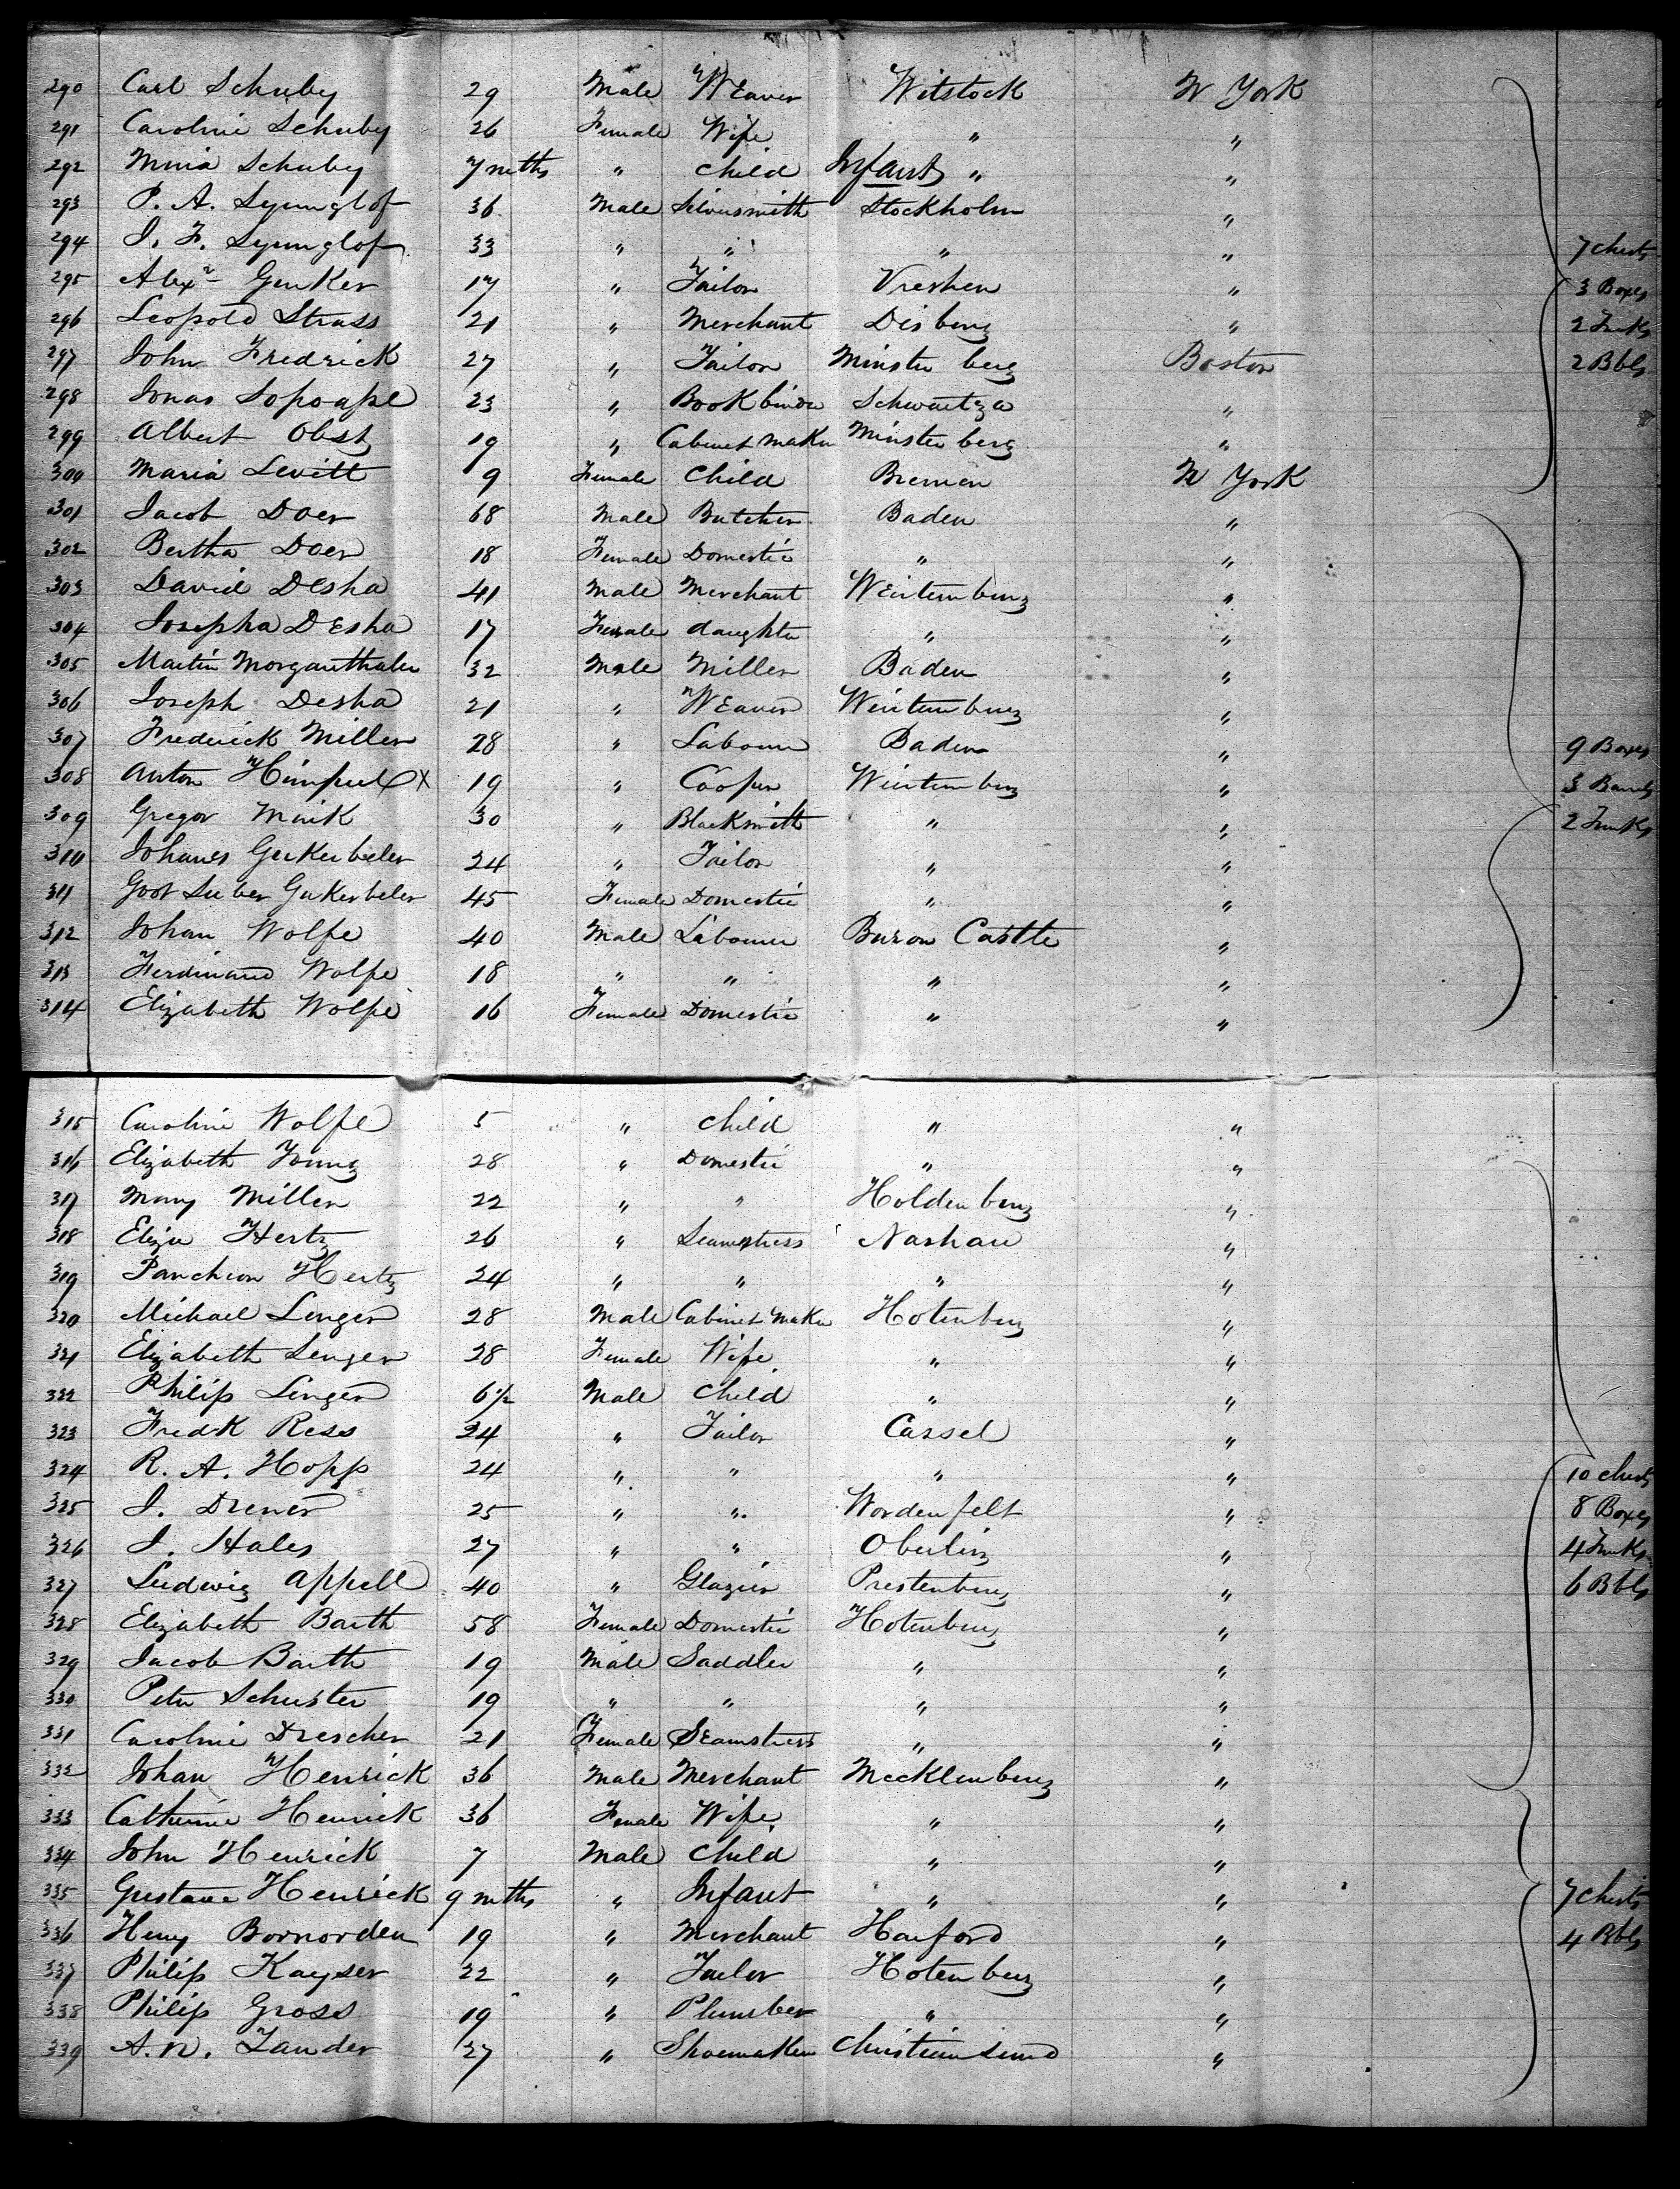 290 Carl Schuby 29 Male Weaver Witstock N York
291 Caroline Schuby 26 Female Wife " "
292 Minia Schuby 7 mths " Child Infant " "
293 P. A. Lyunglof 36 Male Silversmith Stockholm "
294 J. F. Lyunglof 33 " " " " 7 Chests
295 Alexr Gunker 17 " Tailor Vreshen " 3 Boxes
296 Leopold Strass 21 " Merchant Disburg " 2 Trunks
297 John Fredrick 27 " Tailor Minster berg Boston 2 Bbls
298 Jonas Sopoapl 23 " Book binder Schwartza "
299 Albert Obst 19 " Cabinet maker Minster berg "
300 Maria Levitt 9 Female Child Bremen N York
301 Jacob Doer 68 Male Butcher Baden "
302 Bertha Doer 18 Female Domestic " "
303 David Desha 41 Male Merchant Weirtemburg "
304 Josepha Desha 17 Female daughter " "
305 Martin Morganthaler 32 Male Miller Baden "
306 Joseph Desha 21 " Weaver Weirtemburg "
307 Frederick Miller 28 " Labourer Baden " 9 Boxes
308 Anton Himpel X 19 " Cooper Weirtemburg " 3 Barrels
309 Gregor Maik 30 " Blacksmith " " 2 Trunks
310 Johanes Gukerbeler 24 " Tailor " "
311 Gukerbeler 45 Female Domestic " "
312 Johan Wolfe 40 Male Labourer Buron Castle "
313 Ferdinand Wolfe 18 " " " "
314 Elizabeth Wolfe 16 Female Domestic " "
315 Caroline Wolfe 5 " Child " "
316 Elizabeth Young 28 " Domestic " "
317 Mary Miller 22 " " Holdenburg "
318 Eliza Hertz 26 " Seamstress Nashau "
319 Hertz 24 " " " "
320 Michael Lenger 28 Male Cabinet Maker Hotenburg "
321 Elizabeth Lenger 28 Female Wife " "
322 Philip Lenger 6 1/2 Male Child " "
323 Fredk Ress 24 " Tailor Cassel "
324 R. A. Hopp 24 " " " " 10 Chests
325 J. Drener 25 " " Wordenfelt " 8 Boxes
326 J. Hales 27 " " Oberling " 4 Trunks
327 Ludwig Appell 40 " Glazier Prestenburg " 6 Bbls
328 Elizabeth Barth 58 Female Domestic Hotenburg "
329 Jacob Barth 19 Male Saddler " "
330 Peter Schuster 19 " " " "
331 Caroline Drescher 21 Female Seamstress " "
332 Johan Henrick 36 Male Merchant Mecklenburg "
333 Catherine Henrick 36 Female Wife " "
334 John Henrick 7 Male Child " "
335 Gustave Henrick 9 mths " Infant " " 7 Chests
336 Henry Bornorden 19 " Merchant Harford " 4 Bbls
337 Philip Kayser 22 " Tailor Hotenburg "
338 Philip Gross 19 " Plumber " "
339 A. N. Zander 27 " Shoemaker Christiansund "